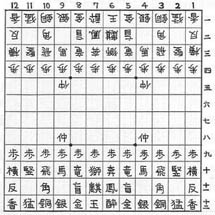 12 11 10 9 8 7 6 5 4 3 2 1
香 猛 銅 銀 金 酔 王 金 銀 銅 猛 香 一
反 角 盲 鳳 麒 盲 角 反 二
横 竪 飛 馬 竜 奔 獅 竜 馬 飛 竪 横 三
歩 歩 歩 歩 歩 歩 歩 歩 歩 歩 歩 歩 四
仲 仲 五
六
七
仲 仲 八
歩 歩 歩 歩 歩 歩 歩 歩 歩 歩 歩 歩 九
横 竪 飛 馬 竜 獅 奔 竜 馬 飛 竪 横 十
反 角 盲 麒 鳳 盲 角 反 十一
香 猛 銅 銀 金 玉 酔 金 銀 銅 猛 香 十二